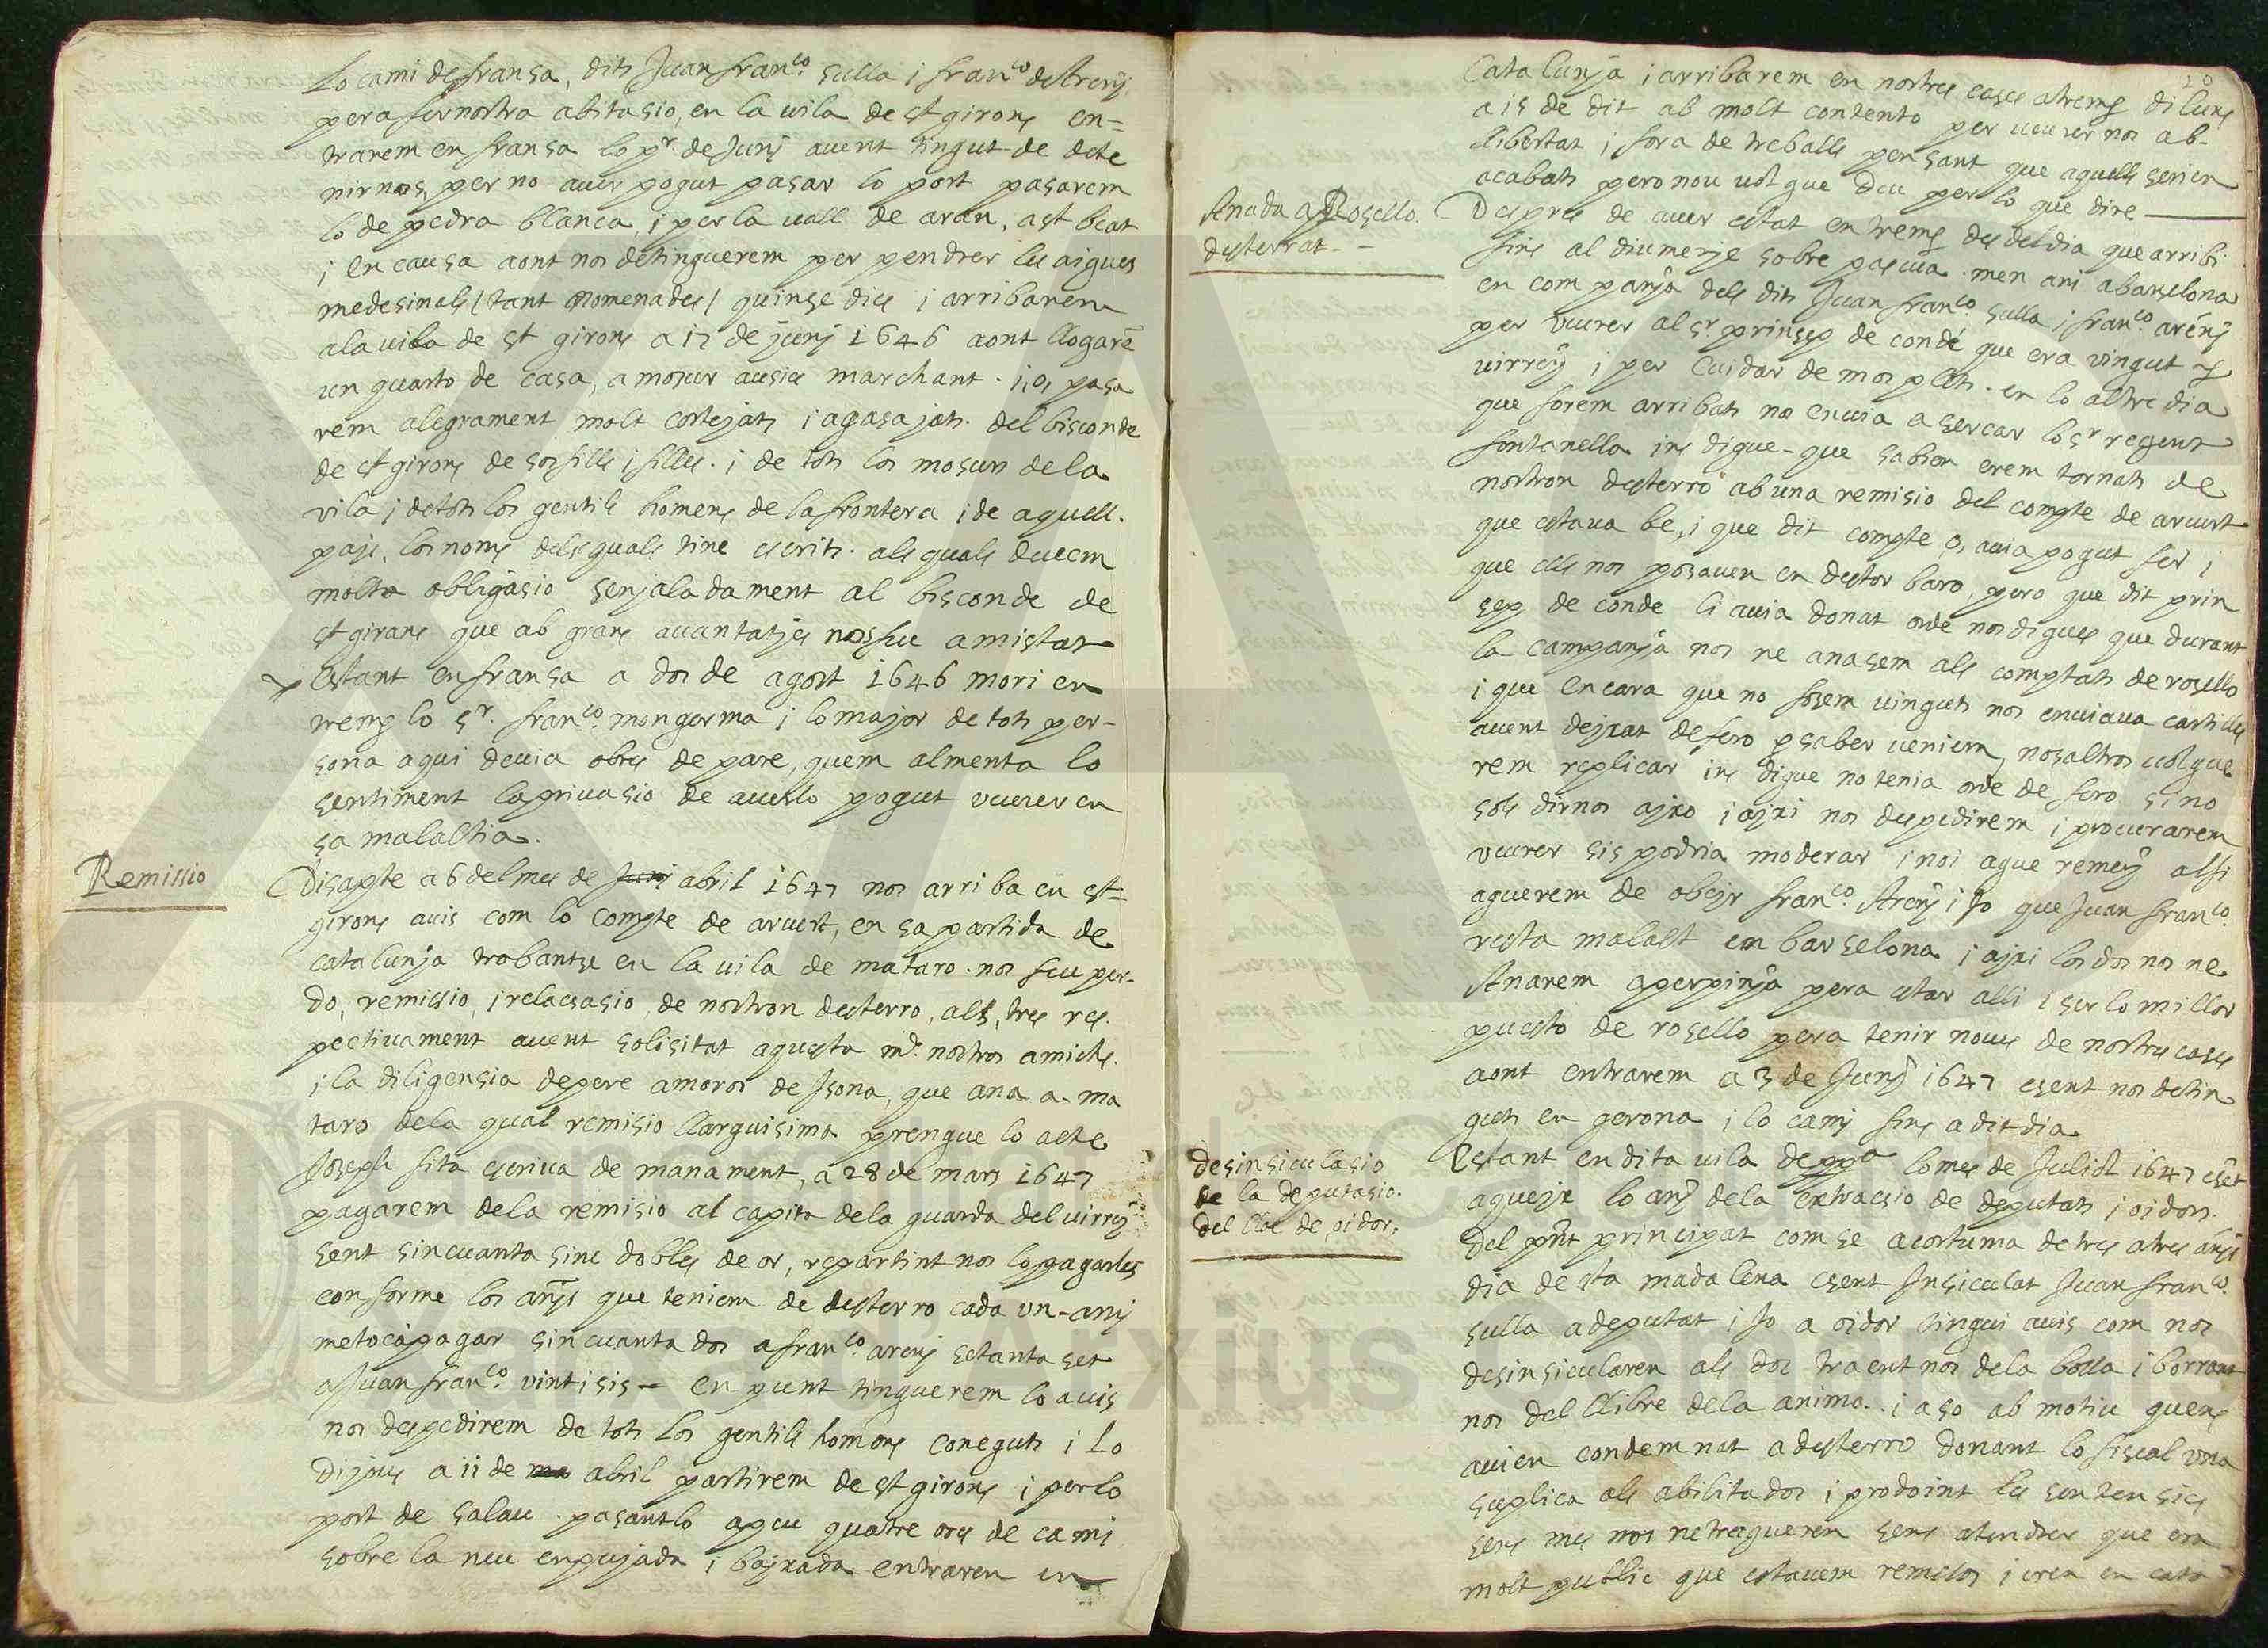 lo cami de fransa, dits Juan fran.co sulla i fran.co de Areny
pera fer nostra abitasio, en la uila de st girons en=
trarem en fransa lo pr. de Junj auent tingut de dete
nirnos, per no auer pogut pasar lo port pasarem
lo de pedra blanca, i per la uall de aran, a st beat
i en causa aont nos detinguerem per pendrer les aigues
medesinals/tant nomenades/ quinse dies i arribarem
a la uila de st girons a 17 de junj 1646 aont llogarē
un quarto de casa, a mosur marchant. i, o, pasa
rem alegrament molt cortejats i agasajats. del bisconde
de st girons de sos fills i filles. i de tots los mosurs de la
vila i de tots los gentils homens de la frontera i de aquell.
pajs. los noms dels quals tinc escrits. als quals deuem
molta obligasio senjaladament al bisconde de
st girons que ab grans auantatjes nos feu amistat
Estant en fransa a dos de agost 1646 mori en
tremp lo sr. fran.co mon germa i lo major de tots per-
sona a qui deuia obres de pare, quem almenta lo
sentiment la priuasio de auerlo pogut veurer en
sa malaltia.
Remissio
Disapte a 6 del mes de Junj abril 1647 nos arriba en st=
girons auis com lo compte de arcurt, en sa partida de
catalunja trobantse en la uila de mataro. nos feu per-
do, remissio, i relacsasio, de nostron desterro, als, tres res.
pectiuament auent solisitat aquesta md. nostros amichs.
i la diligensia de pere amoros de Isona, que ana a ma
taro de la qual remisio llarguisima prengue lo acte
Joseph fita escriua de manament, a 28 de mars 1647
pagarem de la remisio al capita de la guarda del uirrej
sent sincuanta sinc dobles de or, repartint nos lo pagarles
conforme los anjs que teniem de desterro cada un anj
me toca pagar sincuanta dos a fran.co areny setanta set
a Juan fran.co vint i sis – en punt tinguerem lo auis
nos despedirem de tots los gentils homens coneguts i lo
dijous a 11 de ma abril partirem de st girons i per lo
port de salau. pasantlo a peu quatre ores de cami
sobre la neu en pujada i bajxada entrarem en
Catalunja i arribarem en nostres cases a tremp diluns
a 15 de dit ab molt contento per ueurer nos ab-
llibertat i fora de treballs pensant que aquells serien
acabats pero nou uol gue Deu per lo que dire
Anada a Rosello.
desterrat - -
Despres de auer estat en tremp des del dia que arribi
fins al diumenje sobre pascua. men ani a barselona
en companja dels dits Juan fran.co sulla i fran.co arēnj
per veurer al sr prinsep de conde que era vingut p
uirrej i per cuidar de mos plets. en lo altre dia
que forem arribats nos enuia a sercar lo sr regent
fontanella ins digue - que sabien erem tornats de
nostron desterro ab una remisio del compte de arcurt
que estaua be, i que dit compte o, auia pogut fer i
que ells nos posauen en destorbaro, pero que dit prin
sep de conde li auia donat orde nos digues que durant
la campanja nos ne anasem als comptats de rosello
i que encara que no fosem uinguts nos enuiaua cartilles
auent dejxat de fero p saber veniem, nosaltros uolgue
rem replicar ins digue no tenia orde de fero sino
sols dirnos ajxo i ajxi nos despedirem i procurarem
veurer sis podria moderar i noi ague remej alfi
aguerem de obejr fran.co Areny i Jo que Juan fran.co
resta malalt en barselona i ajxi los dos nos ne
Anarem a perpinja pera estar alli i ser lo millor
puesto de rosello pera tenir noues de nostres cases
aont entrarem a 3 de Junj 1647 esent nos detin
guts en gerona i lo camj fins a dit dia
desinsiculasio
de la deputasio.
del lloc de oidor.
Estant en dita uila de ppa lo mes de Juliol 1647 esēt
aqueje lo anj de la extracsio de deputats i oidors.
del pnt principat com se acostuma de tres a tres anjs
dia de sta madalena esent Insiculat Juan fran.co
sulla a deputat i Jo a oidor tingui auis com nos
desinsicularen als dos traent nos de la bolla i borrant
nos del llibre de la anima. i aso ab motiu quens
auien condemnat a desterro donant lo fiscal vna
suplica als abilitados i prodoint les sentensies
sens mes nos ne tragueren sens atendrer que era
molt public que estauem remesos i erem en cata